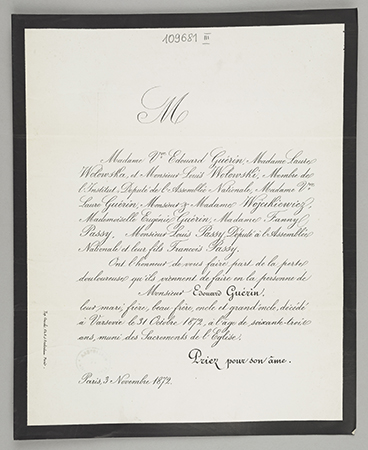 109681 III
M
Madame Vve Edouard Guérin, Madame Laure
Wolowska, et Monsieur Louis Wolowski, Membre de
l'Institut, Député de l'Assemblée Nationale, Madame Vve
Laure Guérin, Monsieur & Madame Wojcikiewicz,
Mademoiselle Eugénie Guérin, Madame Fanny
Passy, Monsieur Louis Passy, Député à l'Assemblée
Nationale et leur fils François Passy.
Ont l'honneur de vous faire part de la perte
douloureuse qu'ils viennent de faire en la personne de
Monsieur Edouard Guérin,
leur mari, frère, beau frère, oncle et grand'oncle, décédé
à Varsovie le 31 Octobre 1872, à l'âge de soixante-trois
ans, muni des Sacrements de l'Eglise.
Priez pour son âme.
Paris, 3 Novembre 1872.